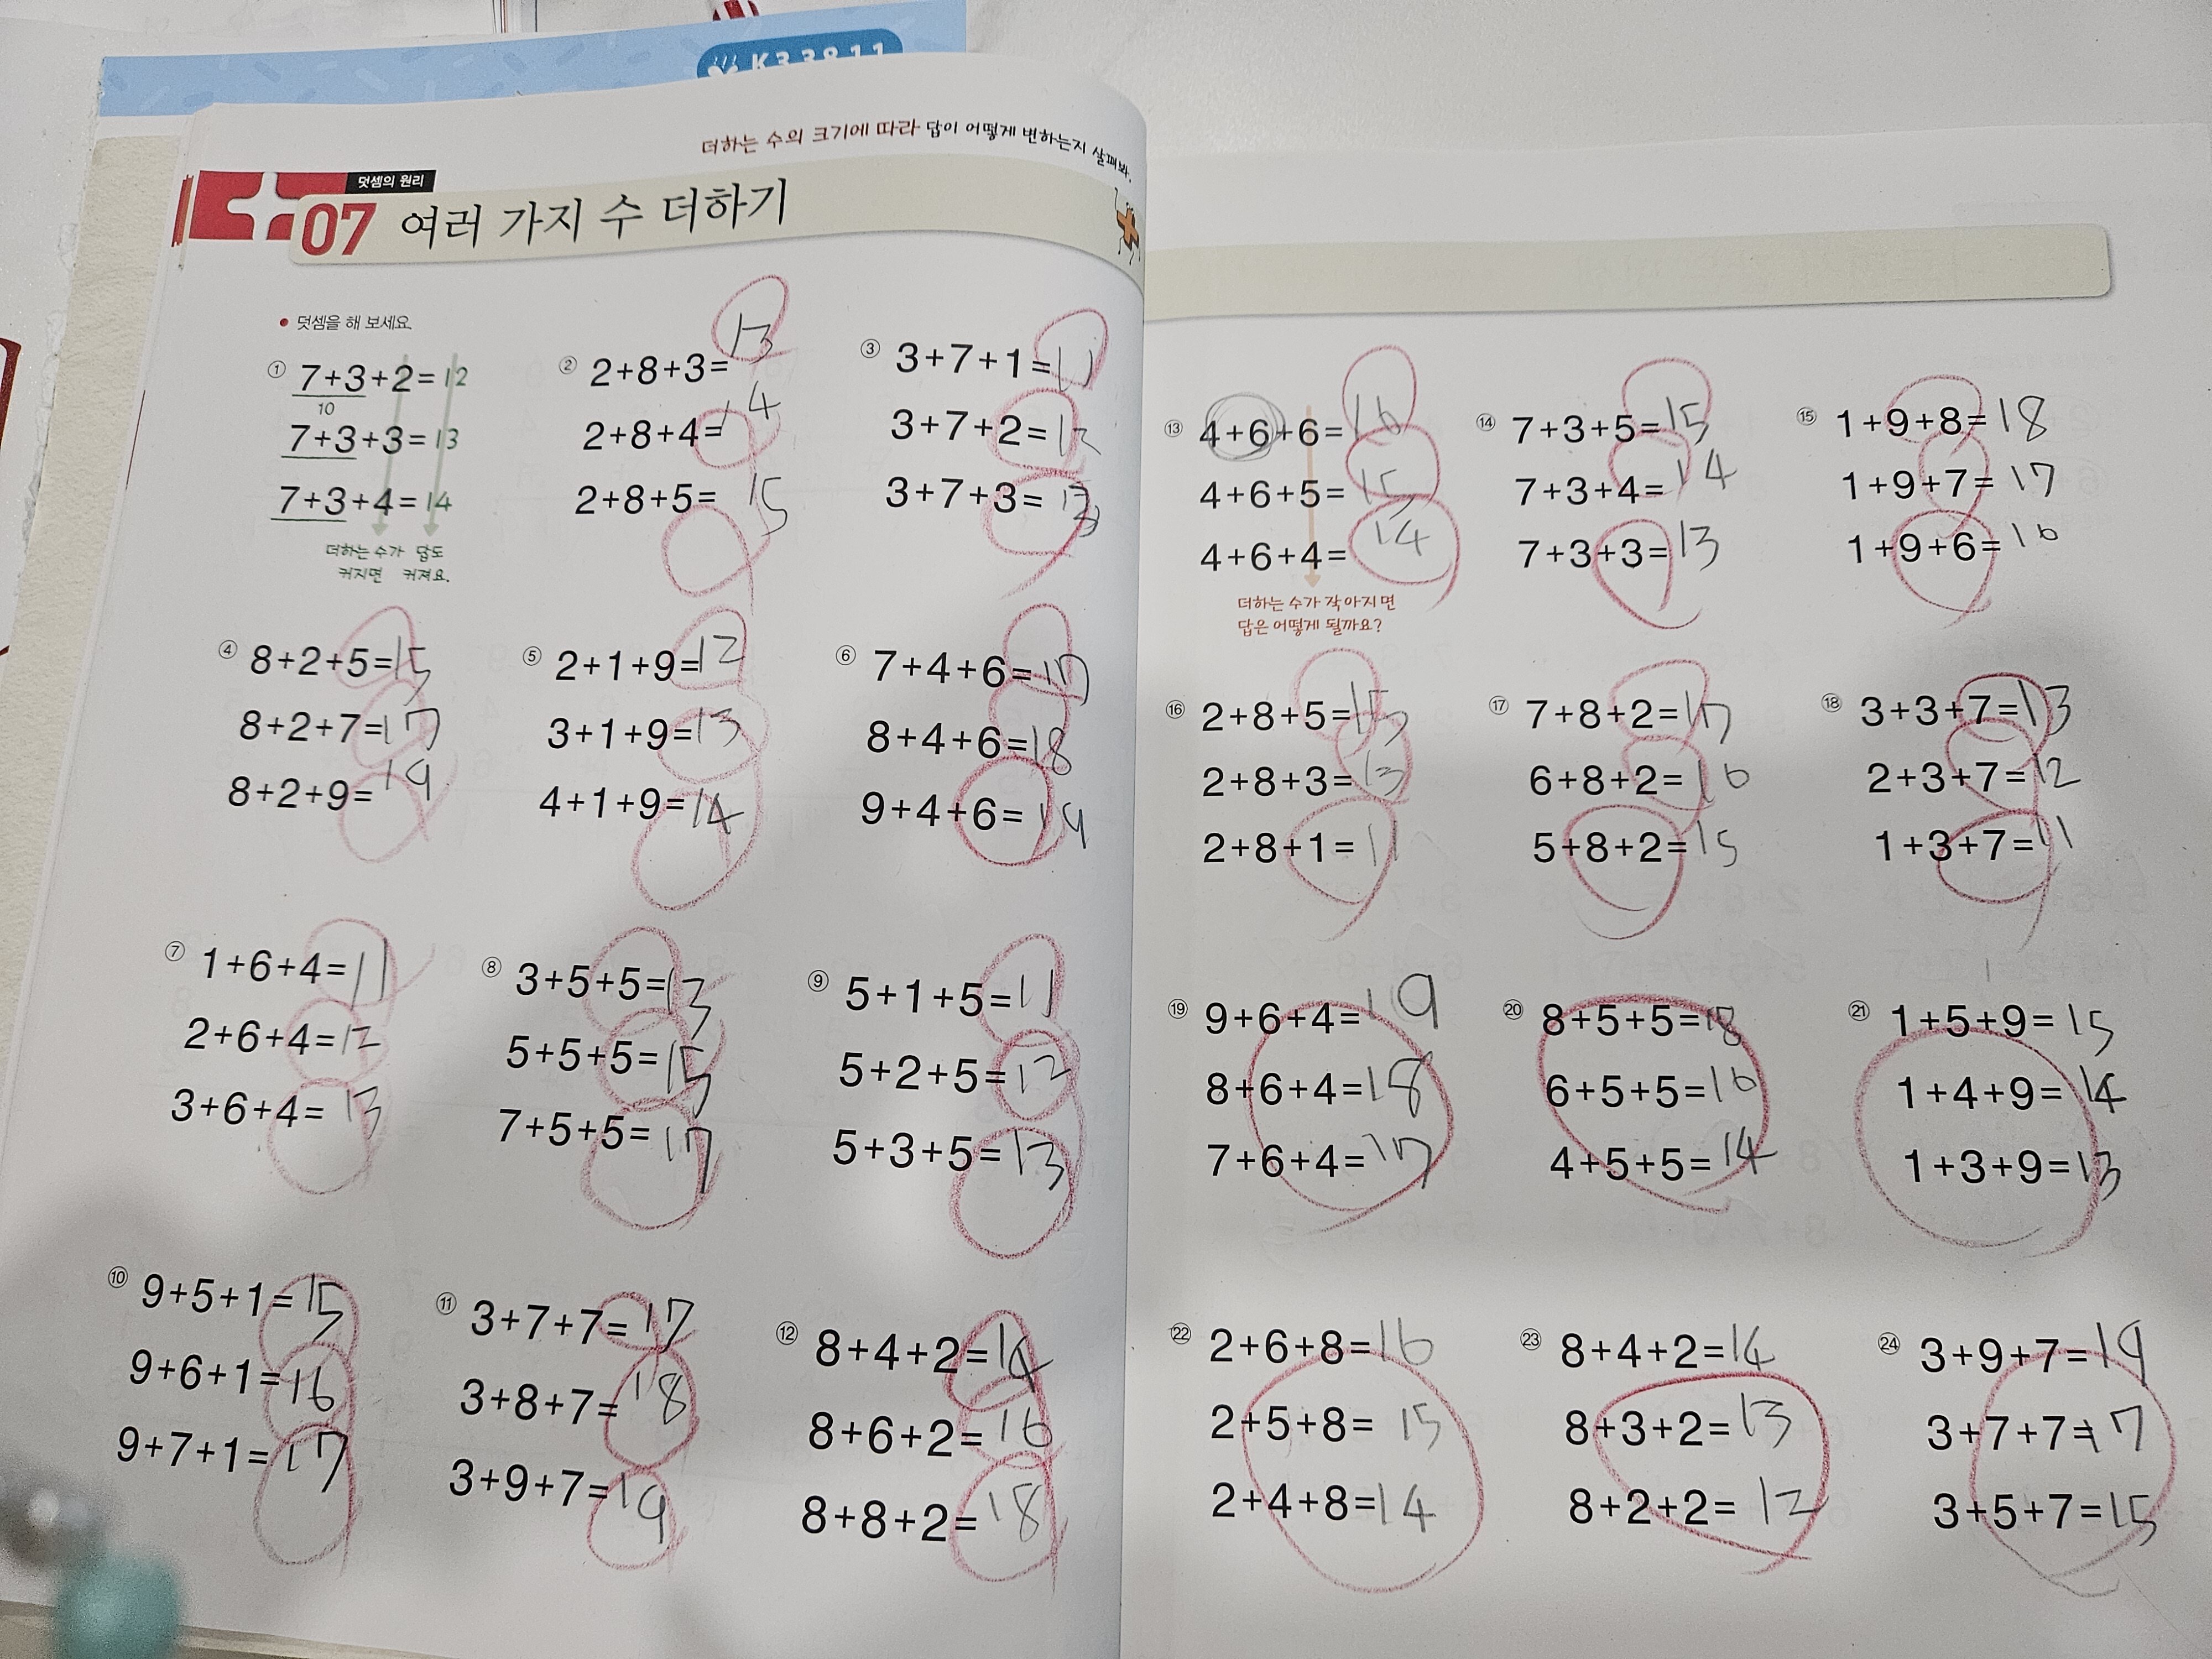 K33811
더하는 수의 크기에 따라 답이 어떻게 변하는지 살펴봐.
덧셈의 원리
07 여러 가지 수 더하기
• 덧셈을 해 보세요.
① 7+3+2=12
10
7+3+3=13
7+3+4=14
더하는 수가 답도
커지면 커져요.
② 2+8+3=13
2+8+4=14
2+8+5=15
③ 3+7+1=11
3+7+2=12
3+7+3=13
④ 8+2+5=15
8+2+7=17
8+2+9=19
⑤ 2+1+9=12
3+1+9=13
4+1+9=14
⑥ 7+4+6=17
8+4+6=18
9+4+6=19
⑦ 1+6+4=11
2+6+4=12
3+6+4=13
⑧ 3+5+5=13
5+5+5=15
7+5+5=17
⑨ 5+1+5=11
5+2+5=12
5+3+5=13
⑩ 9+5+1=15
9+6+1=16
9+7+1=17
⑪ 3+7+7=17
3+8+7=18
3+9+7=19
⑫ 8+4+2=14
8+6+2=16
8+8+2=18
⑬ 4+6+6=16
4+6+5=15
4+6+4=14
더하는 수가 작아지면
답은 어떻게 될까요?
⑭ 7+3+5=15
7+3+4=14
7+3+3=13
⑮ 1+9+8=18
1+9+7=17
1+9+6=16
⑯ 2+8+5=15
2+8+3=13
2+8+1=11
⑰ 7+8+2=17
6+8+2=16
5+8+2=15
⑱ 3+3+7=13
2+3+7=12
1+3+7=11
⑲ 9+6+4=19
8+6+4=18
7+6+4=17
⑳ 8+5+5=18
6+5+5=16
4+5+5=14
㉑ 1+5+9=15
1+4+9=14
1+3+9=13
㉒ 2+6+8=16
2+5+8=15
2+4+8=14
㉓ 8+4+2=14
8+3+2=13
8+2+2=12
㉔ 3+9+7=19
3+7+7=17
3+5+7=15